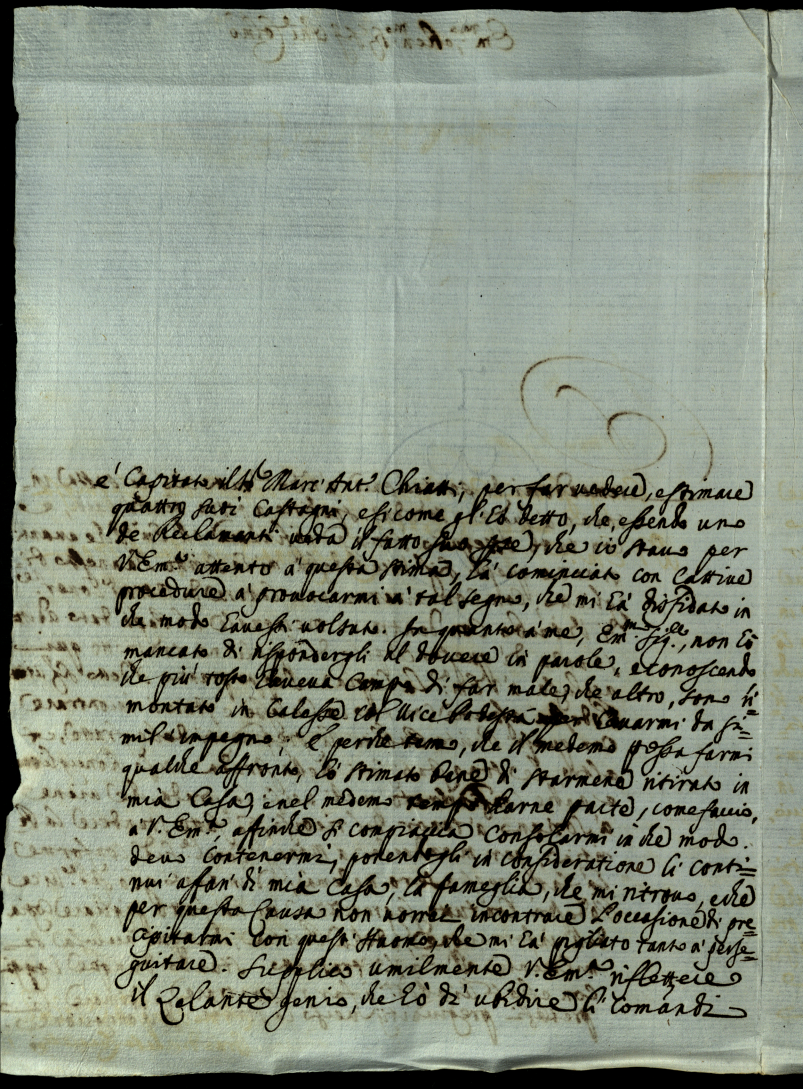 è Capitato il Sr Marc'Ant.o Chiatti, per far vedere, e stimare
quattro suoi Castagni, e sicome gl'hò detto, che, essendo uno
de Reclamanti vada il fatto suo, che io stavo per
V. Em.za attento à questa stima, hà cominciato con Cattive
procedure à provocarmi à tal segno, che mi hà disfidato in
che modo havessi voluto. In quanto à me, Em.mo Sig.re, non hò
mancato di rispondergli al dovere in parole, e conoscendo
che più tosto haveva Campo di far male, che altro, sono ri=
montato in Calesse col Vice Podestà per levarmi da si=
mil impegno. E perche temo, che il medemo possa farmi
qualche affronto, hò stimato bene di starmene ritirato in
mia Casa, e nel medemo tempo darne parte, come faccio,
a V. Em.za, affinche si compiaccia Consolarmi in che modo
devo Contenermi, ponendogli in Consideratione li Conti=
nui affari di mia Casa, la fameglia, che mi ritrovo, e che
per questa Causa non vorrei incontrare l'occasione di pre=
cipitarmi con quest' che mi hà pigliato tanto à perse=
guitare. Supplico umilmente V. Em.za riflettere
il Zelante genio, che hò di ubidire li Comandi